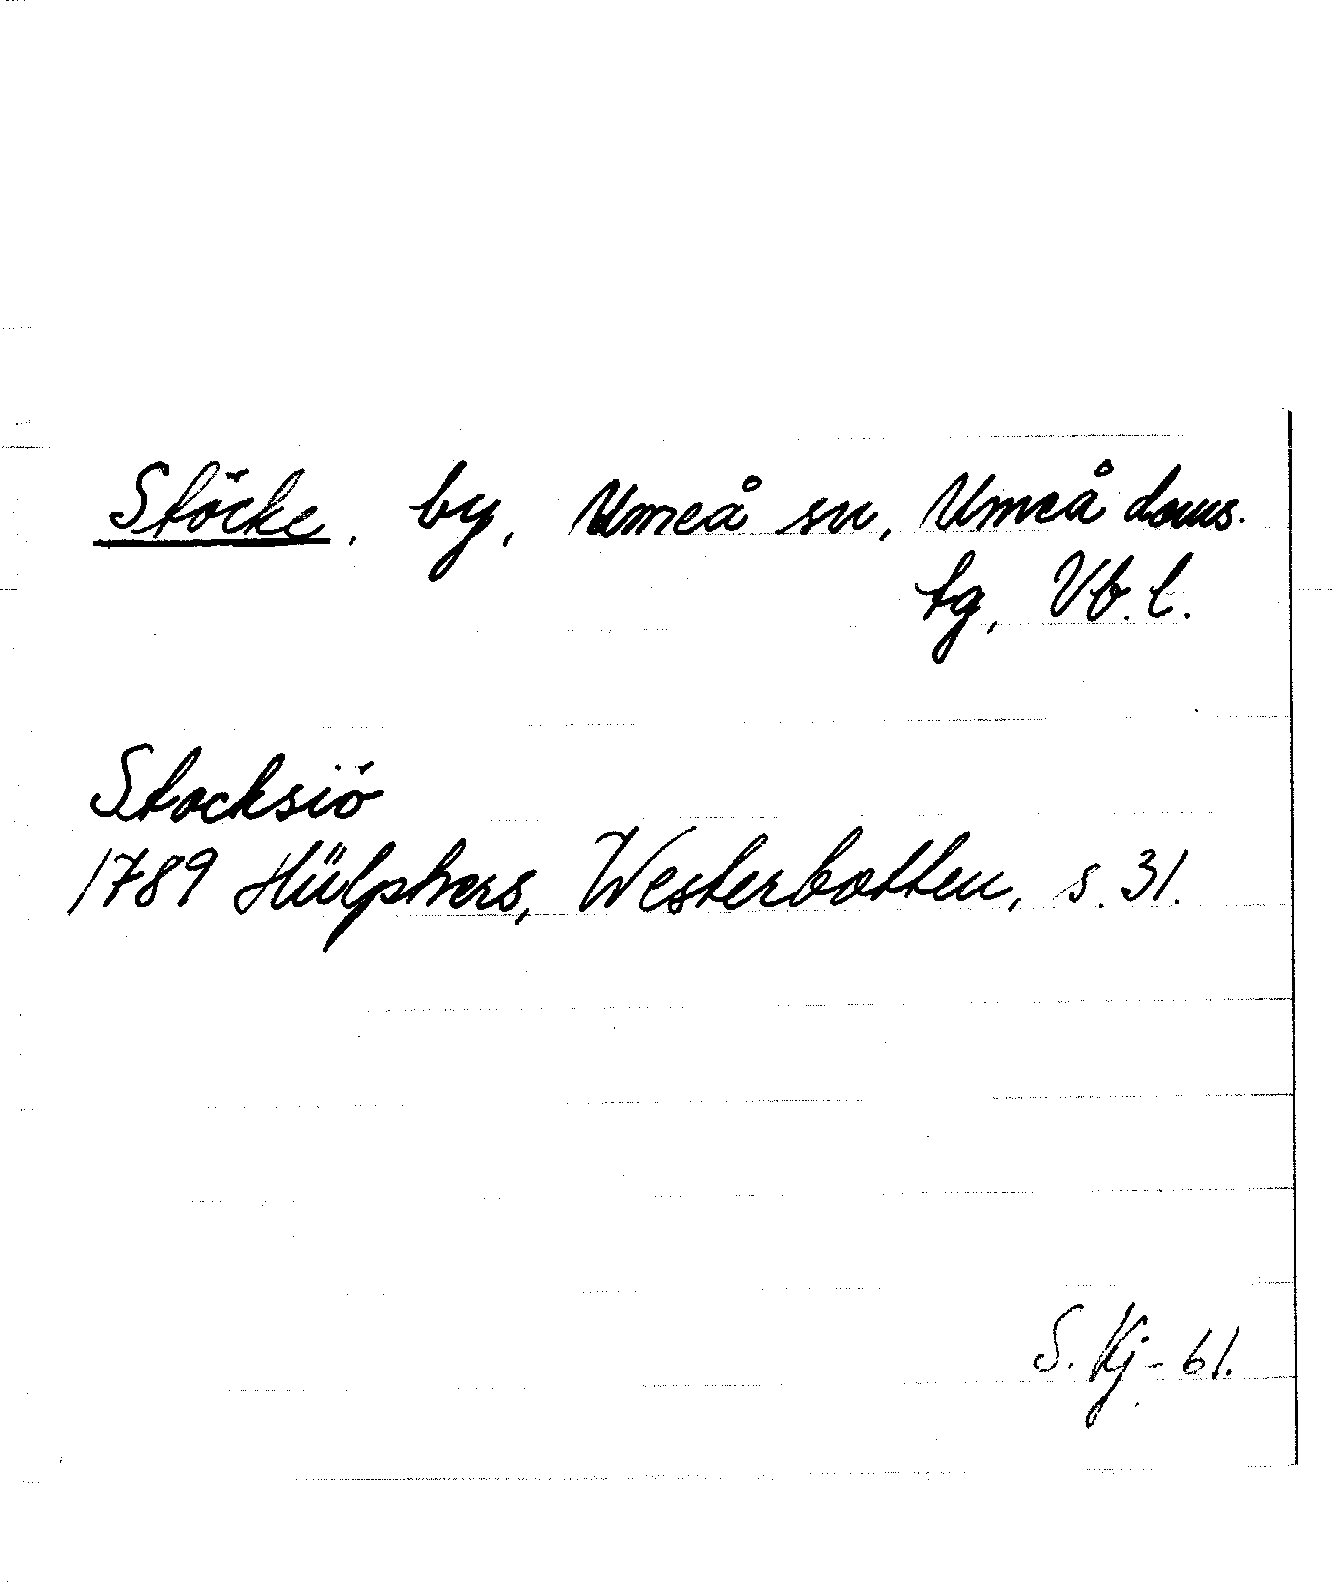 Stöcke, by, Umeå sn, Umeå doms.
tg, Vb. l.
Stocksiö
1789 Hülphers, Westerbotten, s. 31.
S. Kj - 61.